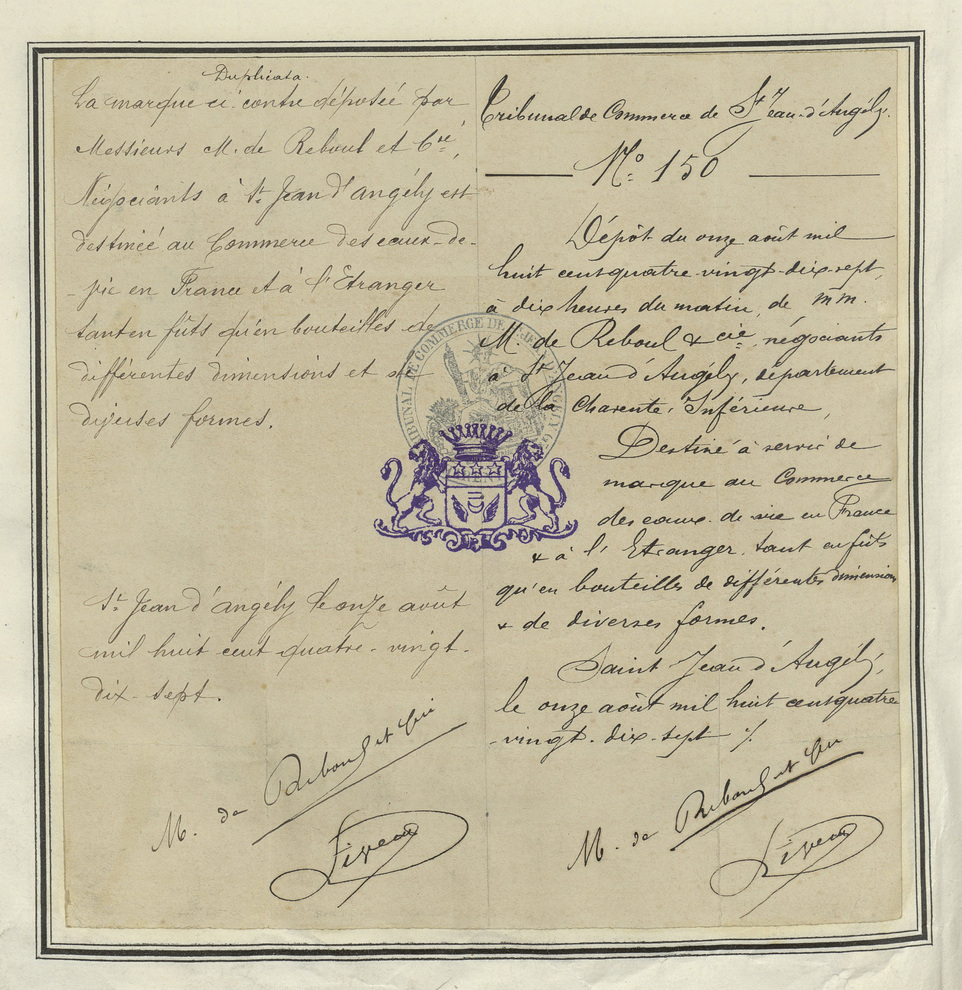 Duplicata.
La marque ci-contre déposée par
Messieurs M. de Reboul et Cie,
Négociants à St. Jean d'angély est
destinée au Commerce des eaux-de-
-vie en France et à l'Etranger
tant en fûts qu'en bouteilles de
différentes dimensions et de
diverses formes.
St. Jean d'angély le onze août
mil huit cent quatre-vingt-
dix-sept.
M. de Reboul et Cie
Tribunal de Commerce de St Jean-d'Angély.
No. 150
Dépôt du onze août mil
huit cent quatre-vingt-dix-sept,
à dix heures du matin, de M.M.
M. de Reboul & Cie, négociants
à St Jean d'Angély, département
de la Charente-Inférieure,
Destiné à servir de
marque au Commerce
des eaux-de-vie en France
& à l'Etranger, tant en fûts
qu'en bouteilles de différentes dimensions
& de diverses formes.
Saint Jean d'Angély,
le onze août mil huit cent quatre
-vingt-dix-sept ./.
M. de Reboul et Cie
TRIBUNAL DE COMMERCE DE